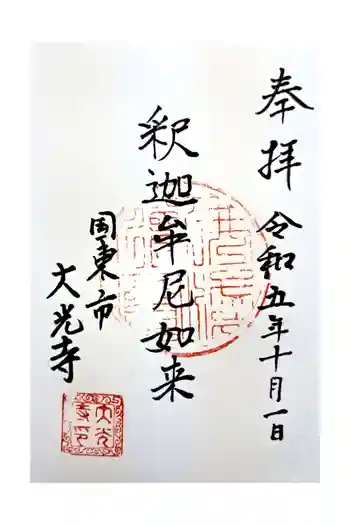 奉拝 令和五年十月一日
釈迦牟尼如来
周東市
大光寺
大光寺印